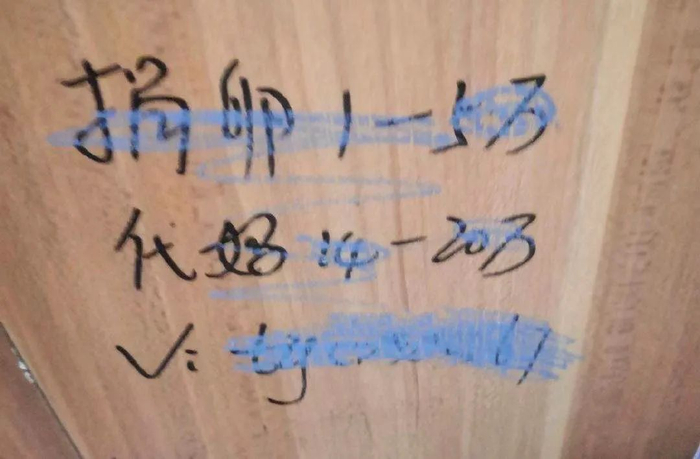 捐卵1-5万
代妈14-20万
V: